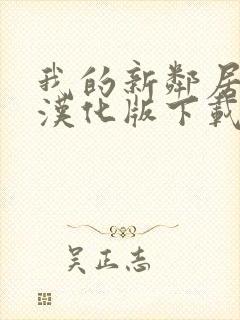 我的新鄰居
漢化版下載
吴正志